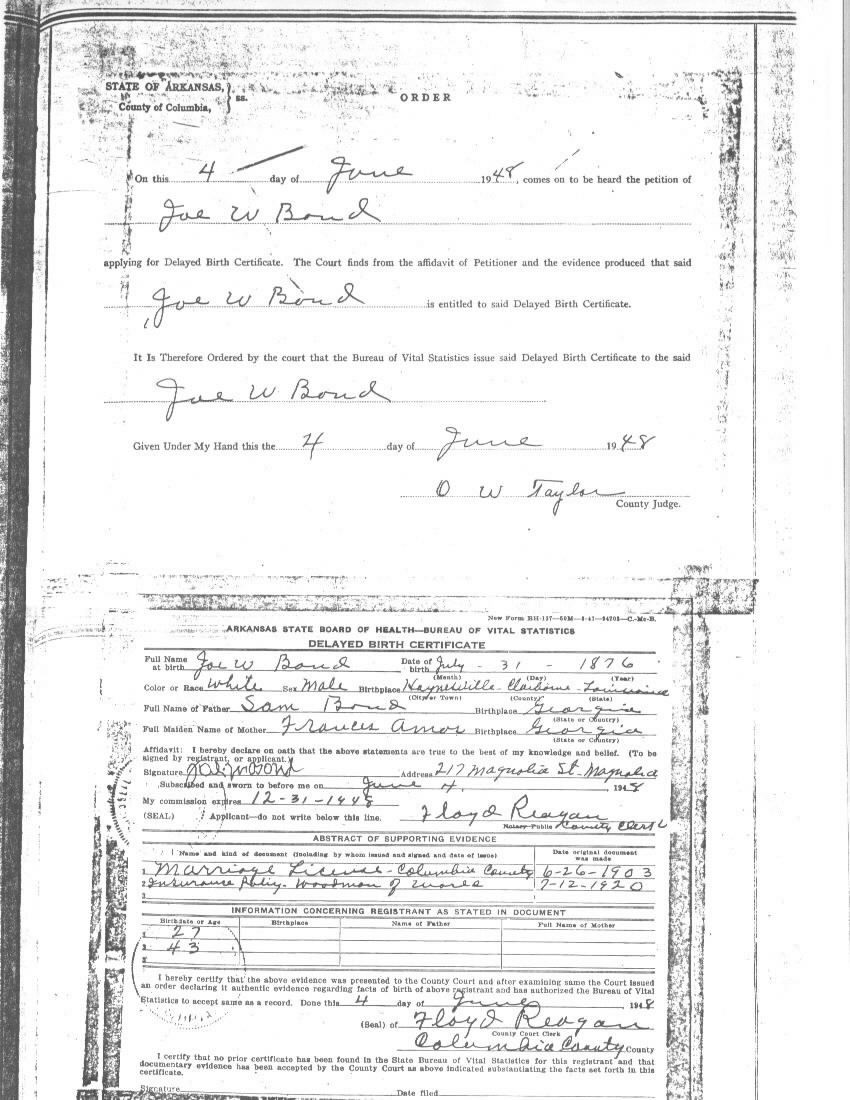 STATE OF ARKANSAS,
County of Columbia, } ss.
ORDER
On this 4 day of June 1948, comes on to be heard the petition of
Joe W Bond
applying for Delayed Birth Certificate. The Court finds from the affidavit of Petitioner and the evidence produced that said
Joe W Bond is entitled to said Delayed Birth Certificate.
It Is Therefore Ordered by the court that the Bureau of Vital Statistics issue said Delayed Birth Certificate to the said
Joe W Bond
Given Under My Hand this the 4 day of June 1948
O W Taylor
County Judge.
New Form BH-137—50M—3-41—34708—C.-Mc-B.
ARKANSAS STATE BOARD OF HEALTH—BUREAU OF VITAL STATISTICS
DELAYED BIRTH CERTIFICATE
Full Name at birth Joe W Bond Date of birth July - 31 - 1876
(Month) (Day) (Year)
Color or Race White Sex Male Birthplace Haynesville Claiborne Louisiana
(City or Town) (County) (State)
Full Name of Father Sam Bond Birthplace Georgia
(State or Country)
Full Maiden Name of Mother Frances Amos Birthplace Georgia
(State or Country)
Affidavit: I hereby declare on oath that the above statements are true to the best of my knowledge and belief. (To be
signed by registrant, or applicant.)
Signature Address 217 Magnolia St. Magnolia
Subscribed and sworn to before me on June 4, 1948
My commission expires 12-31-1948 Floyd Reagan
(SEAL) Applicant—do not write below this line. Notary Public County Clerk
ABSTRACT OF SUPPORTING EVIDENCE
Name and kind of document (including by whom issued and signed and date of issue) Date original document was made
1 Marriage License - Columbia County 6-26-1903
2 Insurance Policy - Woodman of World 7-12-1920
3
INFORMATION CONCERNING REGISTRANT AS STATED IN DOCUMENT
Birthdate or Age Birthplace Name of Father Full Name of Mother
27
43
I hereby certify that the above evidence was presented to the County Court and after examining same the Court issued
an order declaring it authentic evidence regarding facts of birth of above registrant and has authorized the Bureau of Vital
Statistics to accept same as a record. Done this 4 day of June, 1948
(Seal) of Floyd Reagan
County Court Clerk
Columbia County County
I certify that no prior certificate has been found in the State Bureau of Vital Statistics for this registrant and that
documentary evidence has been accepted by the County Court as above indicated substantiating the facts set forth in this
certificate.
Signature Date filed